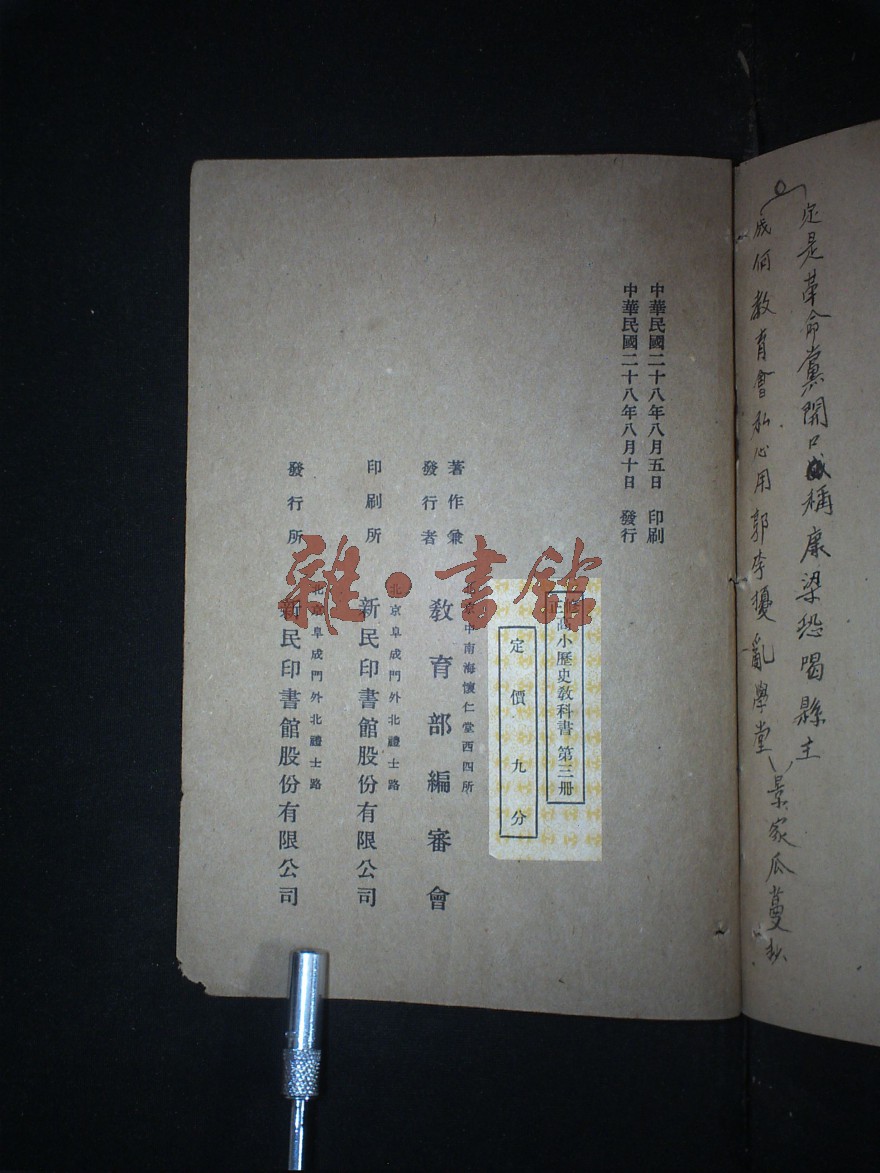 定是革命黨開口稱康梁恐喝縣主
成何教育會私心用郭李擾亂學堂
景家瓜蔓抄
中華民國二十八年八月五日 印刷
中華民國二十八年八月十日 發行
修正高小歷史教科書 第三冊
定價九分
著作兼發行者
北京中南海懷仁堂西四所
教育部編審會
印刷所
北京阜成門外北禮士路
新民印書館股份有限公司
發行所
北京阜成門外北禮士路
新民印書館股份有限公司
雜·書館